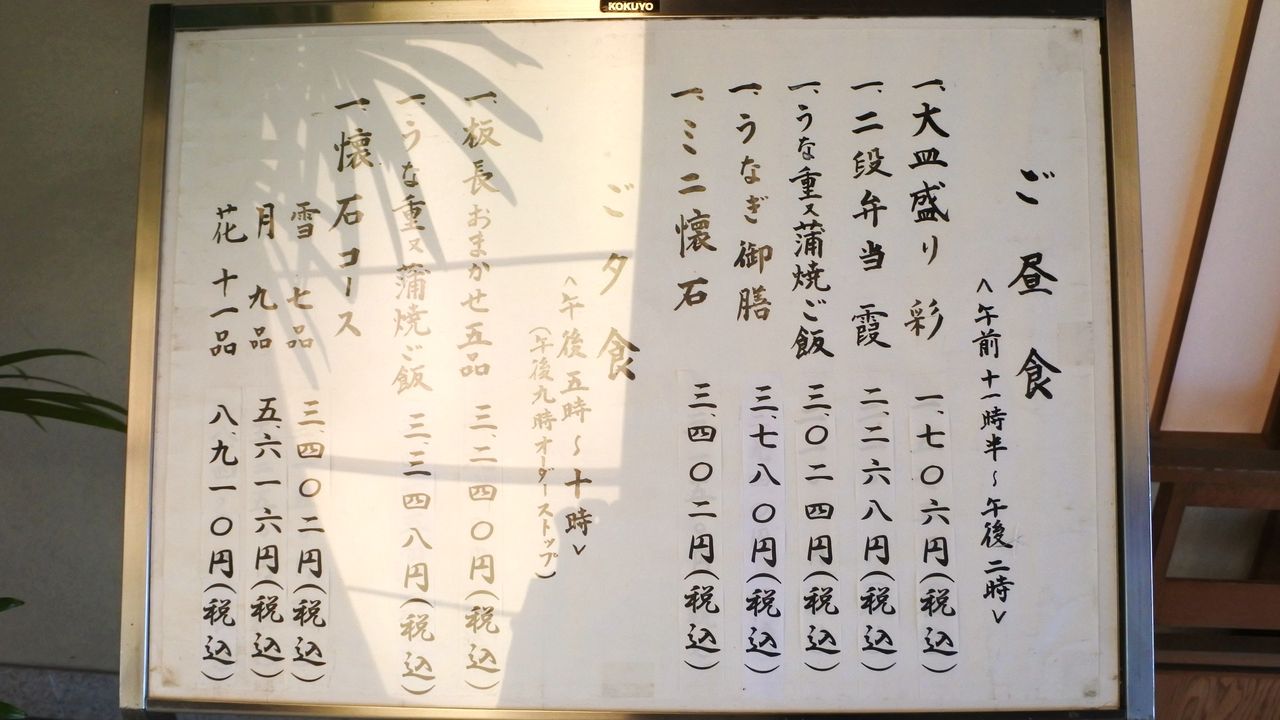 KOKUYO
ご昼食
＜午前十一時半～午後二時＞
一、大皿盛り 彩 一、七〇六円(税込)
一、二段弁当 霞 二、二六八円(税込)
一、うな重又蒲焼ご飯 三、〇二四円(税込)
一、うなぎ御膳 三、七八〇円(税込)
一、ミニ懐石 三、四〇二円(税込)
ご夕食
＜午後五時～十時＞
(午後九時オーダーストップ)
一、板長おまかせ五品 三、二四〇円(税込)
一、うな重又蒲焼ご飯 三、三四八円(税込)
一、懐石コース
雪 七品 三、四〇二円(税込)
月 九品 五、六一六円(税込)
花 十一品 八、九一〇円(税込)